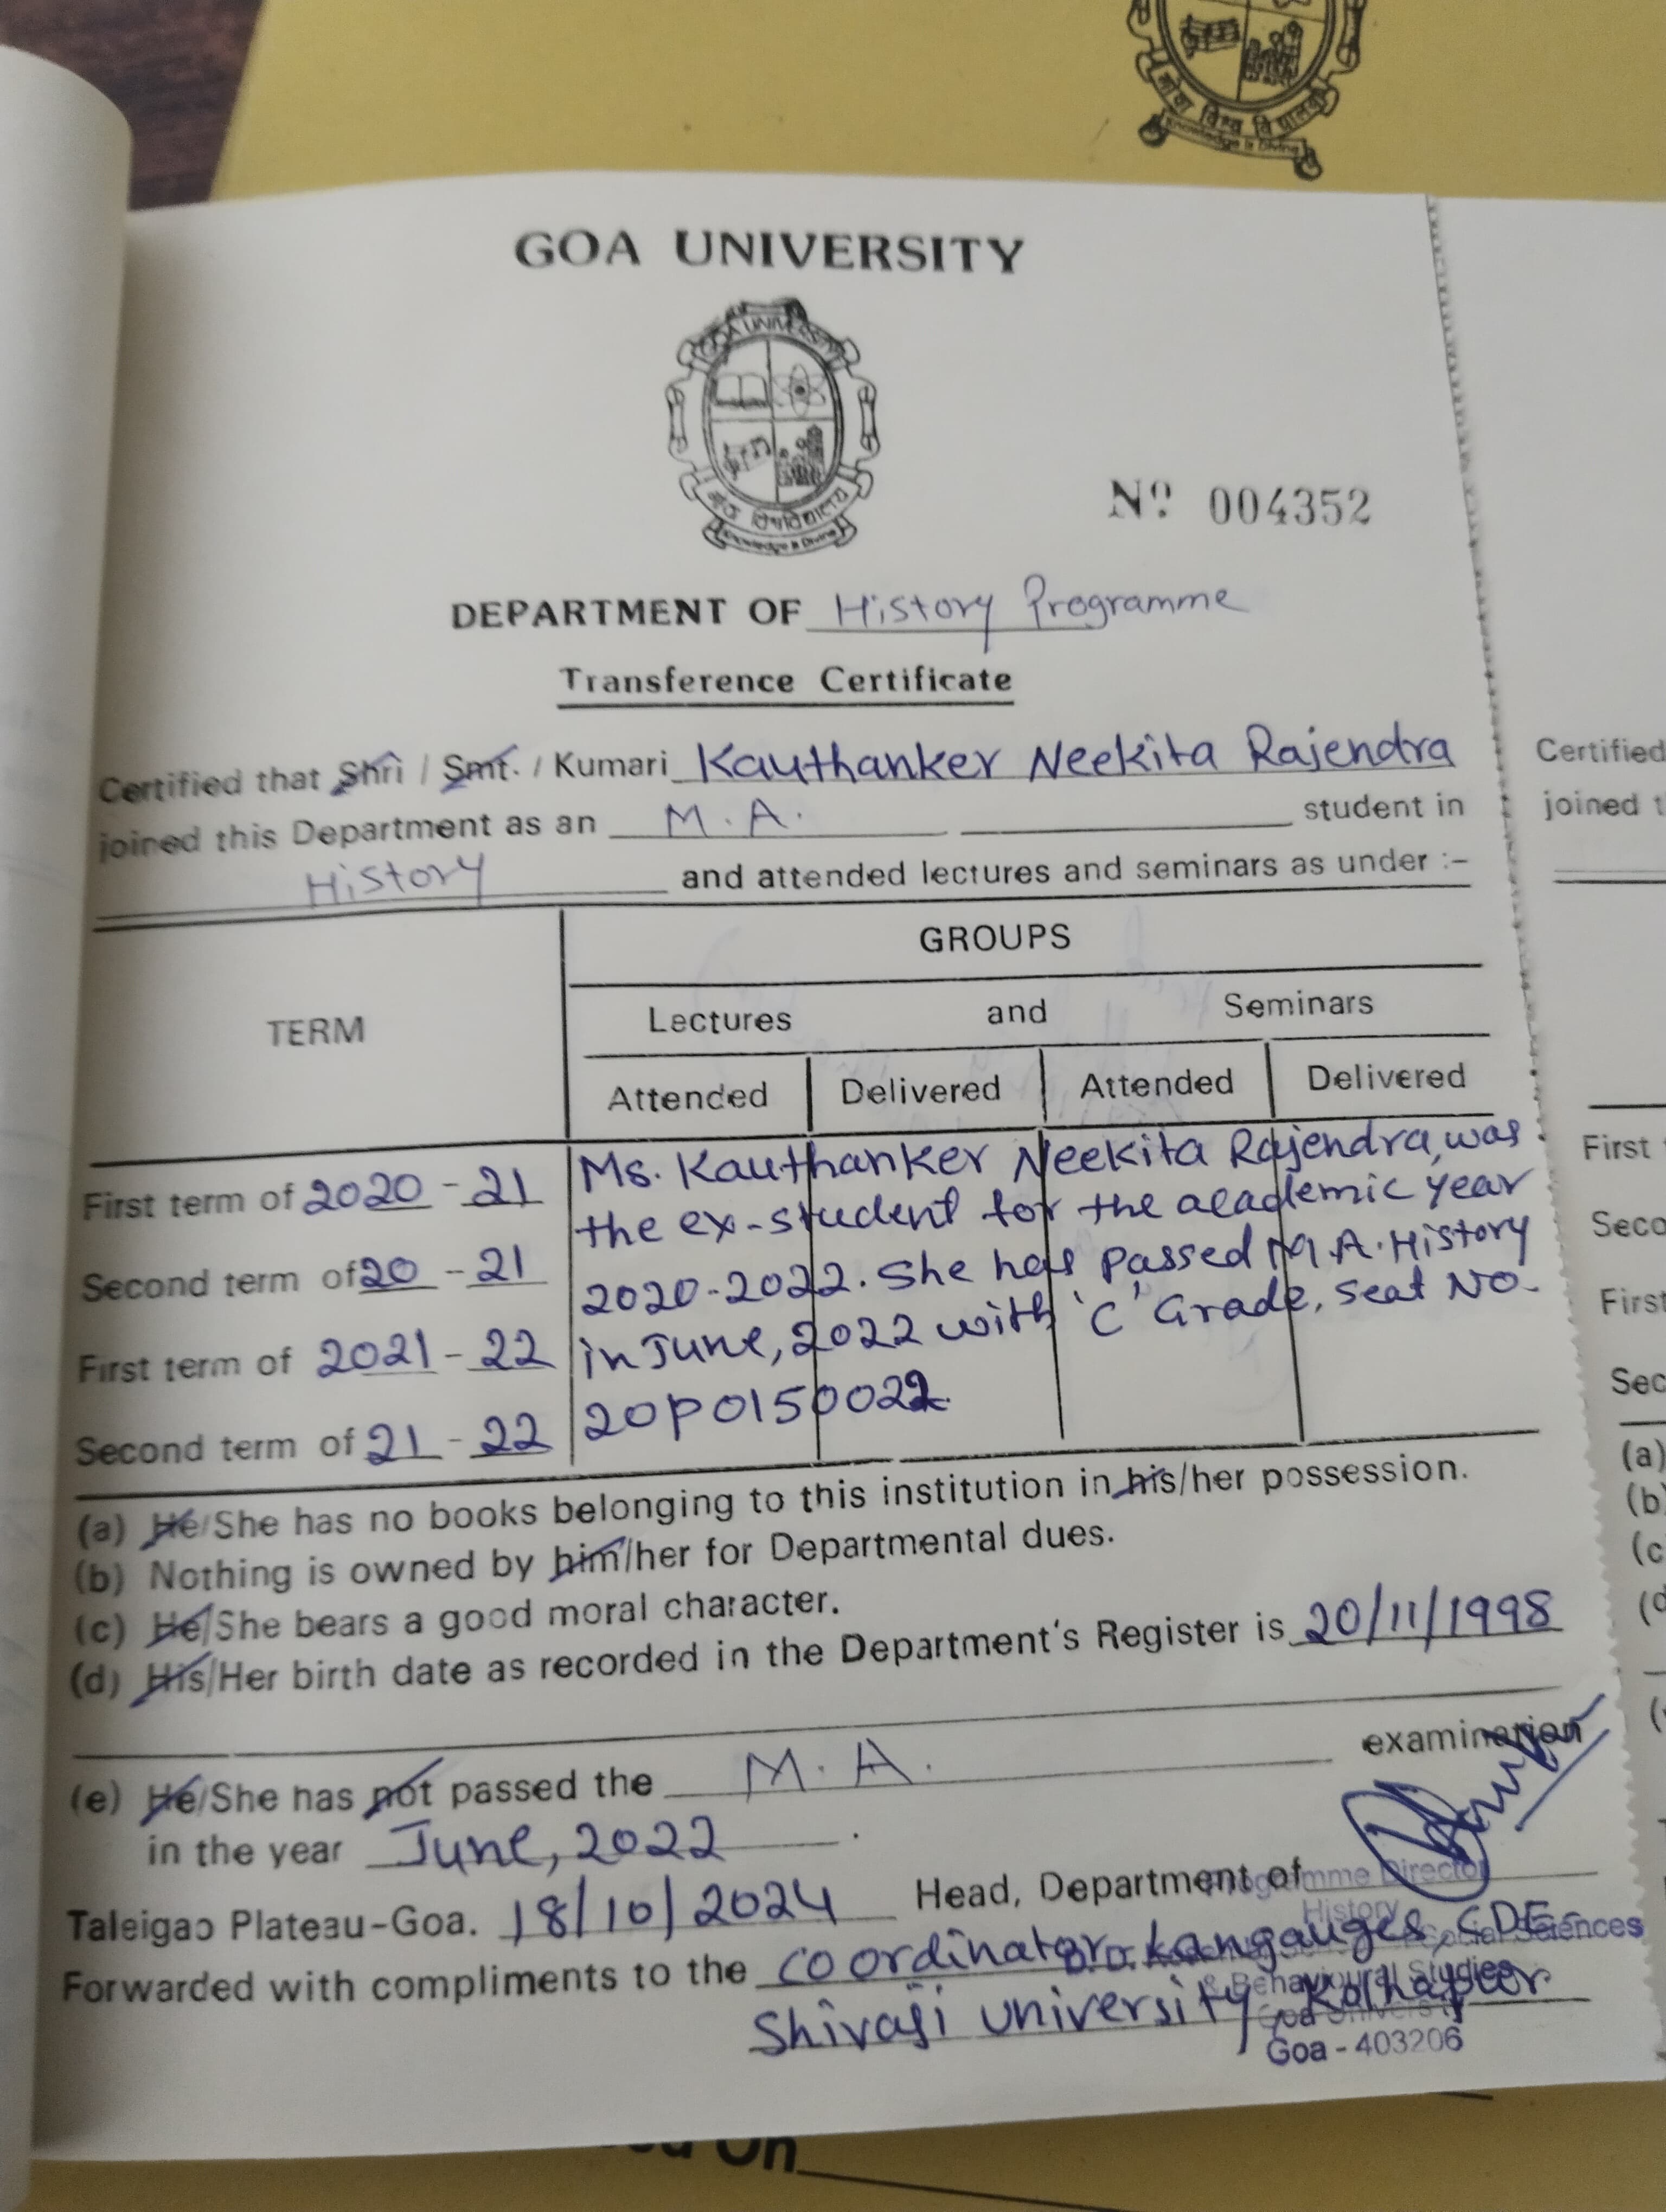 गोवा विश्व विद्यालय
Knowledge is Divine
GOA UNIVERSITY
GOA UNIVERSITY
Knowledge is Divine
Nº 004352
DEPARTMENT OF History Programme
Transference Certificate
Certified that Shri / Smt. / Kumari Kauthanker Neekita Rajendra
joined this Department as an M.A. student in
History and attended lectures and seminars as under :-
TERM
GROUPS
Lectures and Seminars
Attended Delivered Attended Delivered
First term of 2020 - 21
Second term of 20 - 21
First term of 2021 - 22
Second term of 21 - 22
Ms. Kauthanker Neekita Rajendra, was
the ex-student for the academic year
2020-2022. She has passed M.A. History
in June, 2022 with 'C' Grade, seat No.
20P0150022.
(a) He/She has no books belonging to this institution in his/her possession.
(b) Nothing is owned by him/her for Departmental dues.
(c) He/She bears a good moral character.
(d) His/Her birth date as recorded in the Department's Register is 20/11/1998
(e) He/She has not passed the M.A. examination
in the year June, 2022.
Taleigao Plateau-Goa. 18/10/2024 Head, Department of
Programme Director
History
Social Sciences
& Behavioural Studies
Goa University
Goa - 403206
Forwarded with compliments to the coordinator, Langauges, CDE-
Shivaji University, Kolhapur
Certified
joined
First
Seco
First
Sec
(a)
(b)
(c
(d
On